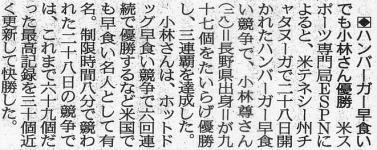 ◆ハンバーガー早食い
でも小林さん優勝　米ス
ポーツ専門局ESPNに
よると、米テネシー州チ
ャタヌーガで二十八日開
かれたハンバーガー早食
い競争で、小林尊さん
(二八)=長野県出身=が九
十七個をたいらげ優勝
し、三連覇を達成した。
　小林さんは、ホットド
ッグ早食い競争で六回連
続で優勝するなど米国で
も早食い名人として有
名。制限時間八分で競わ
れた二十八日の競争で
は、これまで六十九個だ
った最高記録を三十個近
く更新して快勝した。